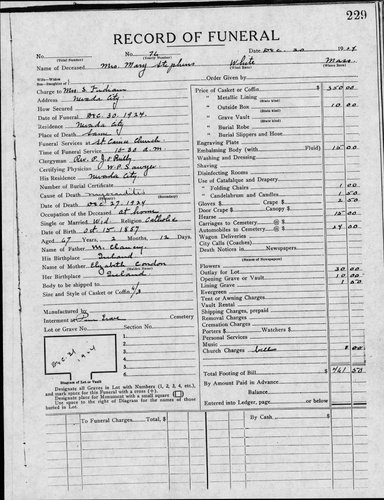 229
RECORD OF FUNERAL
No. No. 76 Date Dec. 30 19
(Total Number) (Yearly Number)
Name of Deceased Mrs. Mary Stephens White Mass.
(What Race) (Where Born)
Charge to Mrs. E. Order Given by
Address Nevada City
How Secured
Date of Funeral Dec. 30. 1924.
Residence Nevada City
Place of Death Same
Funeral Services at St. Canice Church
Time of Funeral Service 10-30 a.m.
Clergyman Rev. P. J. O'Reilly
Certifying Physician W. P. Sawyer
His Residence Nevada City
Number of Burial Certificate
Cause of Death
Date of Death Dec 27. 1924
Occupation of the Deceased at home
Single or Married Wid. Religion Catholic
Date of Birth Oct. 15 1857
Aged 67 Years, Months 12 Days
Name of Father M. Clancy
His Birthplace Ireland
Name of Mother Elizabeth Condon
Her Birthplace Ireland
Body to be shipped to
Size and Style of Casket or Coffin 6/3
Manufactured by
Interment at Cemetery
Lot or Grave No. Section No.
1.
2.
3.
4.
5.
6.
7.
Diagram of Lot or Vault
Designate all Graves in Lot with Numbers (1, 2, 3, 4, etc.), and mark space for this Funeral with a cross (+).
Designate place for Monument with a small square
Use space to the right of Diagram for the names of those buried in Lot.
Price of Casket or Coffin $ 350 00
" Metallic Lining
(State Kind)
" Outside Box 10 00
(State Kind)
" Grave Vault
(State Kind)
" Burial Robe
(State Kind)
" Burial Slippers and Hose
Engraving Plate
Embalming Body (with Fluid) 15 00
Washing and Dressing
Shaving
Disinfecting Rooms
Use of Catafalque and Drapery
" Folding Chairs 1 00
" Candelabrum and Candles 1 50
Gloves $ Crape $ 2 50
Door Crape $ Canopy $
Hearse 15 00
Carriages to Cemetery @ $
Automobiles to Cemetery @ $ 24 00
Wagon Deliveries
City Calls (Coaches)
Death Notices in Newspapers
(Names of Newspapers)
Flowers
Outlay for Lot 20 00
Opening Grave or Vault 10 00
Lining Grave 1 50
Evergreens
Tent or Awning Charges
Vault Rental
Shipping Charges, prepaid
Removal Charges
Cremation Charges
Porters $ Watchers $
Personal Services
Music
Church Charges bells 8 00
Total Footing of Bill $ 461 50
By Amount Paid in Advance
Balance
Entered into Ledger, page or below.
To Funeral Charges Total $
By Cash $